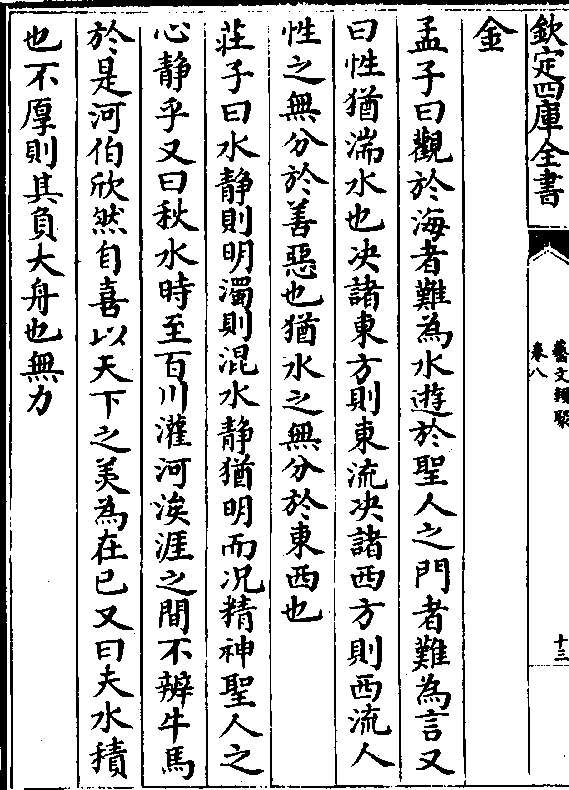 欽定四庫全書
藝文類聚
卷八
十三
金
孟子曰觀於海者難為水遊於聖人之門者難為言又
曰性猶湍水也决諸東方則東流决諸西方則西流人
性之無分於善惡也猶水之無分於東西也
莊子曰水静則明濁則混水静猶明而况精神聖人之
心静乎又曰秋水時至百川灌河涘涯之間不辨牛馬
於是河伯欣然自喜以天下之美為在己又曰夫水積
也不厚則其負大舟也無力